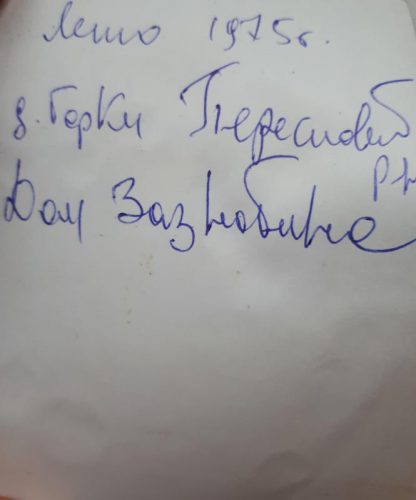 Лето 1975г.
д. Горки Переславск
р-н
Дом Зазнобина